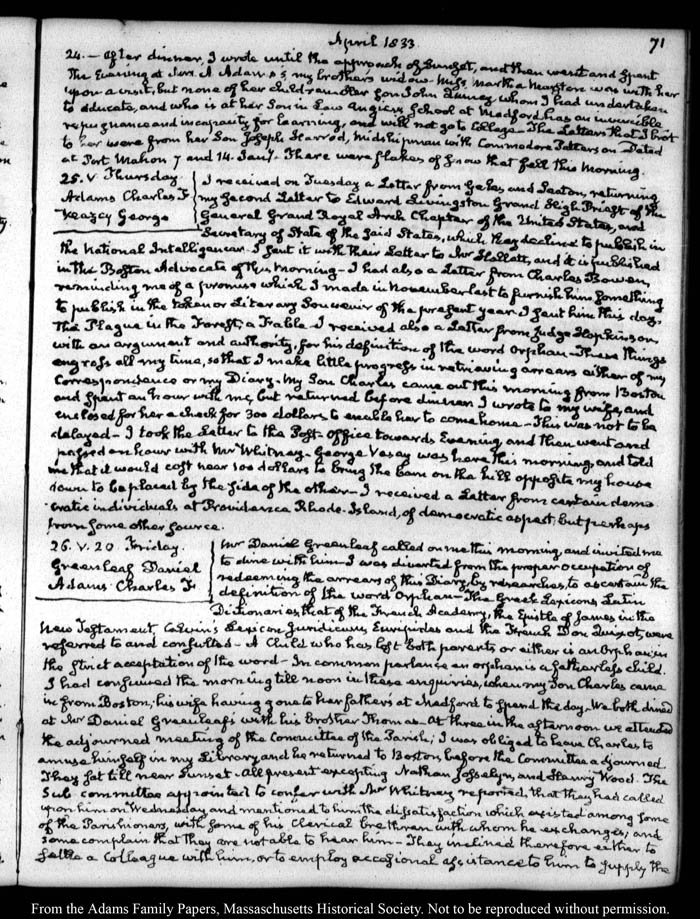 April 1833.
71
24.— After dinner, I wrote until the approach of Sunset, and then went and spent
the Evening at Mrs. A Adams's, my brothers widow. Miss Martha Marston was with her
upon a visit, but none of her children after John Quincy whom I had undertaken
to educate, and who is at her Son in Law Angier's School at Medford, has an invincible
repugnance and incapacity for learning, and will not go to College. The Letters that I sent
to her were from her Son Joseph Harrod, Midshipman with Commodore Patterson Dated
at Port Mahon 7 and 14. Jany. There were flakes of Snow that fell this Morning.
25. V. Thursday
Adams Charles F
Veazey George
I received on Tuesday a Letter from Gales and Seaton, returning
my second Letter to Edward Livingston Grand High Priest of the
General Grand Royal Arch Chapter of the United States, and
Secretary of State of the said States, which they decline to publish in
the National Intelligencer. I sent it with their Letter to Mr Hallett, and it is published
in the Boston Advocate of this Morning— I had also a Letter from Charles Bowen,
reminding me of a promise which I made in November last to furnish him something
to publish in the Token or Literary Souvenir of the present year. I sent him this day,
The Plague in the Forest, a Fable. I received also a Letter from Judge Hopkinson,
with an argument and authority, for his definition of the word Orphan— These things
engross all my time, so that I make little progress in retrieving arrears either of my
Correspondence or my Diary. My Son Charles came out this morning from Boston
and spent an hour with me, but returned before dinner. I wrote to my wife, and
enclosed for her a check for 300 dollars to enable her to come home— This was not to be
delayed— I took the Letter to the Post-Office towards Evening, and then went and
passed an hour with Mr Whitney— George Veazy was here this morning, and told
me that it would cost near 100 dollars to bring the barn on the hill opposite my house
down to be placed by the side of the other— I received a Letter from certain demo-
cratic individuals at Providence Rhode-Island, of democratic aspect, but perhaps
from some other source.
26. V. 20 Friday.
Greenleaf Daniel
Adams Charles F
Mr Daniel Greenleaf called on me this morning, and invited me
to dine with him— I was diverted from the proper occupation of
redeeming the arrears of this Diary, by researches, to ascertain the
definition of the word Orphan— The Greek Lexicons, Latin
Dictionaries, that of the French Academy, the Epistle of James in the
New Testament, Calvin's Lexicon Juridicum, Euripides and the French Don Quixot, were
referred to and consulted— A Child who has lost both parents or either is an Orphan, in
the strict acceptation of the word— In common parlance an orphan is a fatherless child.
I had consumed the morning till noon in these enquiries, when my Son Charles came
in from Boston; his wife having gone to her fathers at Medford to spend the day. We both dined
at Mr Daniel Greenleaf's with his brother Thomas. At three in the afternoon we attended
the adjourned meeting of the Committee of the Parish; I was obliged to leave Charles to
amuse himself in my Library, and he returned to Boston, before the Committee adjourned.
They sat till near Sunset. All present excepting Nathan Josselyn, and Harvey Wood. The
Sub-committee appointed to confer with Mr Whitney reported, that they had called
upon him on Wednesday and mentioned to him the dissatisfaction which existed among some
of the Parishioners, with some of his Clerical brethren with whom he exchanges, and
some complain that they are not able to hear him— They inclined therefore either to
settle a Colleague with him, or to employ occasional assistance to him to supply the
From the Adams Family Papers, Massachusetts Historical Society. Not to be reproduced without permission.